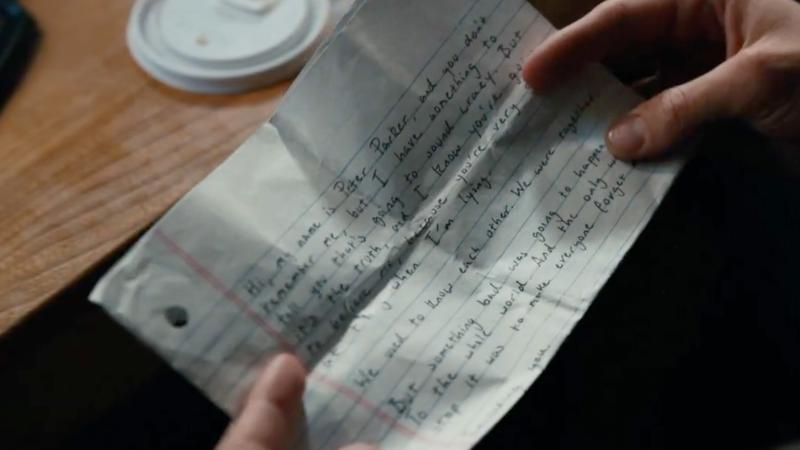 Hi, my name is Peter Parker, and you don't
remember me, but I have something to
tell you that's going to sound crazy. But
it's the truth, and I know you're go
to believe me, because you're very
at when I'm lying.
We used to know each other. We were together
But something bad was going to happen
To the whole world And the only w
stop it was to make everyone forget
you.